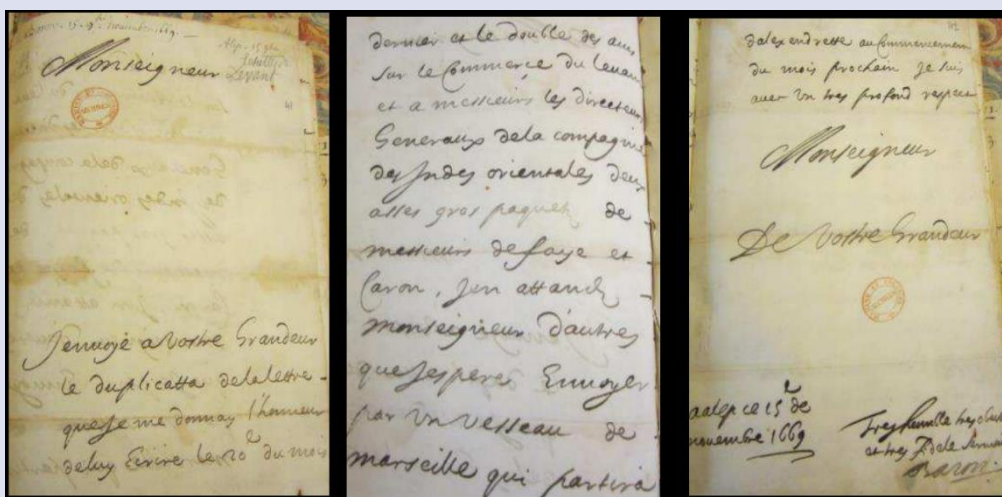 Baron. 15. 9bre novembre 1669.
Alep. 15 9bre
Levant
Monseigneur
J'envoye a Vostre Grandeur
le duplicatta de la lettre
que Je me donnay l'honneur
de luy Ecrire le 20e du mois
dernier et le double des avis
sur le Commerce du levant
et a messieurs les directeurs
Generaux de la compagnie
des Indes orientales deux
asses gros paquets de
messieurs de faye et
Caron, J'en attands
monseigneur d'autres
que J'espere Envoyer
par Un Vesseau de
marseille qui partira
d'alexendrette au Commencement
du mois prochain Je suis
avec Un tres profond respect
Monseigneur
De Vostre Grandeur
a alep ce 15e de
novembre 1669
Tres humble tres obeist
et tres fidele Servite
Baron.